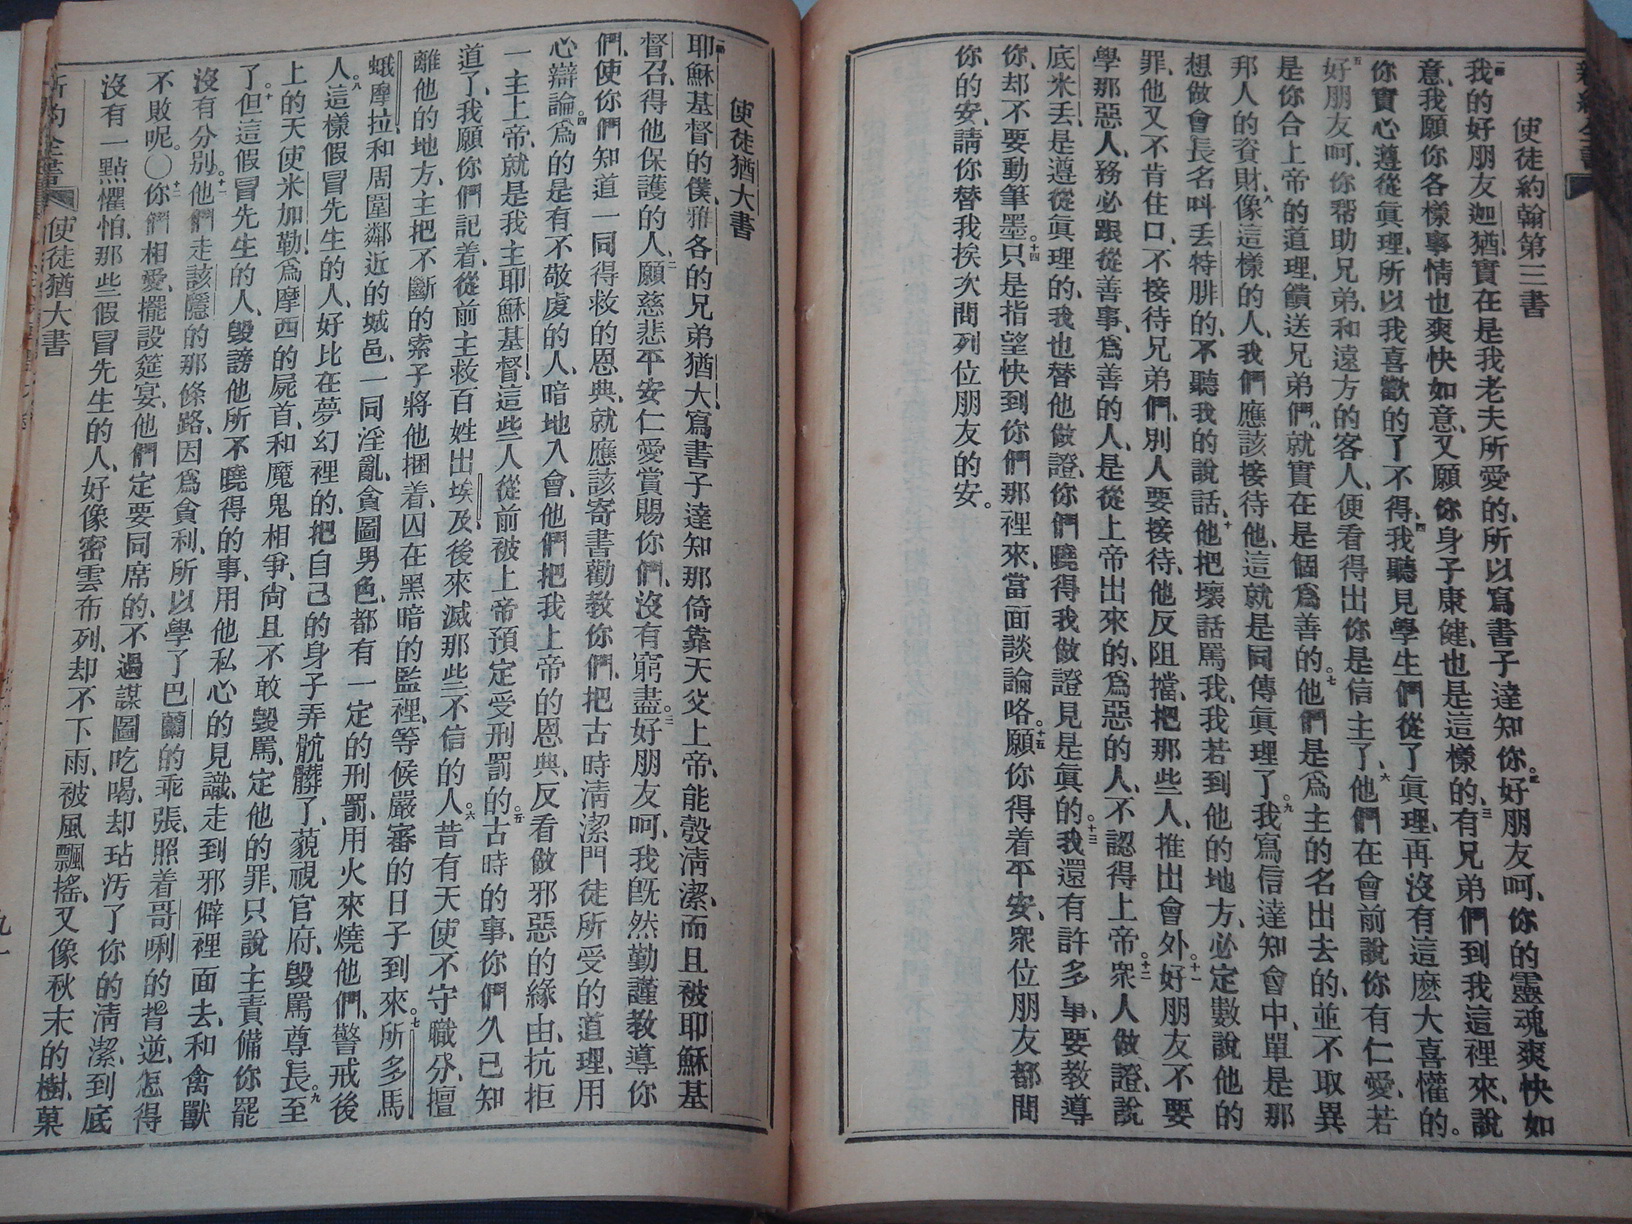 使徒約翰第三書
我的好朋友迦猶、實在是我老夫所愛的、所以寫書子達知你。二好朋友呵、你的靈魂爽快如
意、我願你各樣事情也爽快如意、又願你身子康健、也是這樣的、三有兄弟們到我這裡來、說
你實心遵從眞理、所以我喜歡的了不得、四我聽見學生們從了眞理、再沒有這麽大喜懽的。
五好朋友呵、你帮助兄弟、和遠方的客人、便看得出你是信主了、六他們在會前說你有仁愛、若
是你合上帝的道理、饋送兄弟們、就實在是個爲善的。七他們是爲主的名出去的、並不取異
邦人的資財、八像這樣的人、我們應該接待他、這就是同傳眞理了。九我寫信達知會中、單是那
想做會長名叫丢特腓的、不聽我的說話、十他把壞話罵我、我若到他的地方、必定數說他的
罪、他又不肯住口、不接待兄弟們、別人要接待、他反阻擋、把那些人、推出會外。十一好朋友不要
學那惡人、務必跟從善事、爲善的人、是從上帝出來的、爲惡的人、不認得上帝。十二衆人做證、說
底米丢、是遵從眞理的、我也替他做證、你們曉得我做證見是眞的。十三我還有許多事、要敎導
你、却不要動筆墨。十四只是指望快到你們那裡來、當面談論咯。十五願你得着平安、衆位朋友都問
你的安、請你替我挨次問列位朋友的安。
使徒猶大書
一耶穌基督的僕、雅各的兄弟猶大、寫書子達知那倚靠天父上帝、能彀淸潔、而且被耶穌基
督召、得他保護的人、二願慈悲平安仁愛賞賜你們、沒有窮盡。三好朋友呵、我旣然勤謹敎導你
們、使你們知道一同得救的恩典、就應該寄書勸敎你們、把古時淸潔門徒所受的道理、用
心辯論、四爲的是有不敬虔的人、暗地入會、他們把我上帝的恩典、反看做邪惡的緣由、抗拒
一主上帝、就是我主耶穌基督、這些人從前被上帝預定受刑罰的。五古時的事、你們久已知
道了、我願你們記着、從前主救百姓出埃及、後來滅那些不信的人。六昔有天使不守職分、擅
離他的地方、主把不斷的索子將他捆着、囚在黑暗的監裡、等候嚴審的日子到來。七所多馬
蛾摩拉、和周圍鄰近的城邑、一同淫亂、貪圖男色、都有一定的刑罰、用火來燒他們、警戒後
人。八這樣假冒先生的人、好比在夢幻裡的、把自己的身子弄骯髒了、藐視官府、毀罵尊長、九至
上的天使米加勒、爲摩西的屍首、和魔鬼相爭、尙且不敢毀罵、定他的罪、只說主責備你罷
了。十但這假冒先生的人、毀謗他所不曉得的事、用他私心的見識、走到邪僻裡面去、和禽獸
沒有分別。十一他們走該隱的那條路、因爲貪利、所以學了巴蘭的乖張、照着哥喇的揹逆、怎得
不敗呢。〇十二你們相愛、擺設筵宴、他們定要同席的、不過謀圖吃喝、却玷汚了你的淸潔、到底
沒有一點懼怕、那些假冒先生的人、好像密雲布列、却不下雨、被風飄搖、又像秋末的樹、菓
新約全書
使徒猶大書